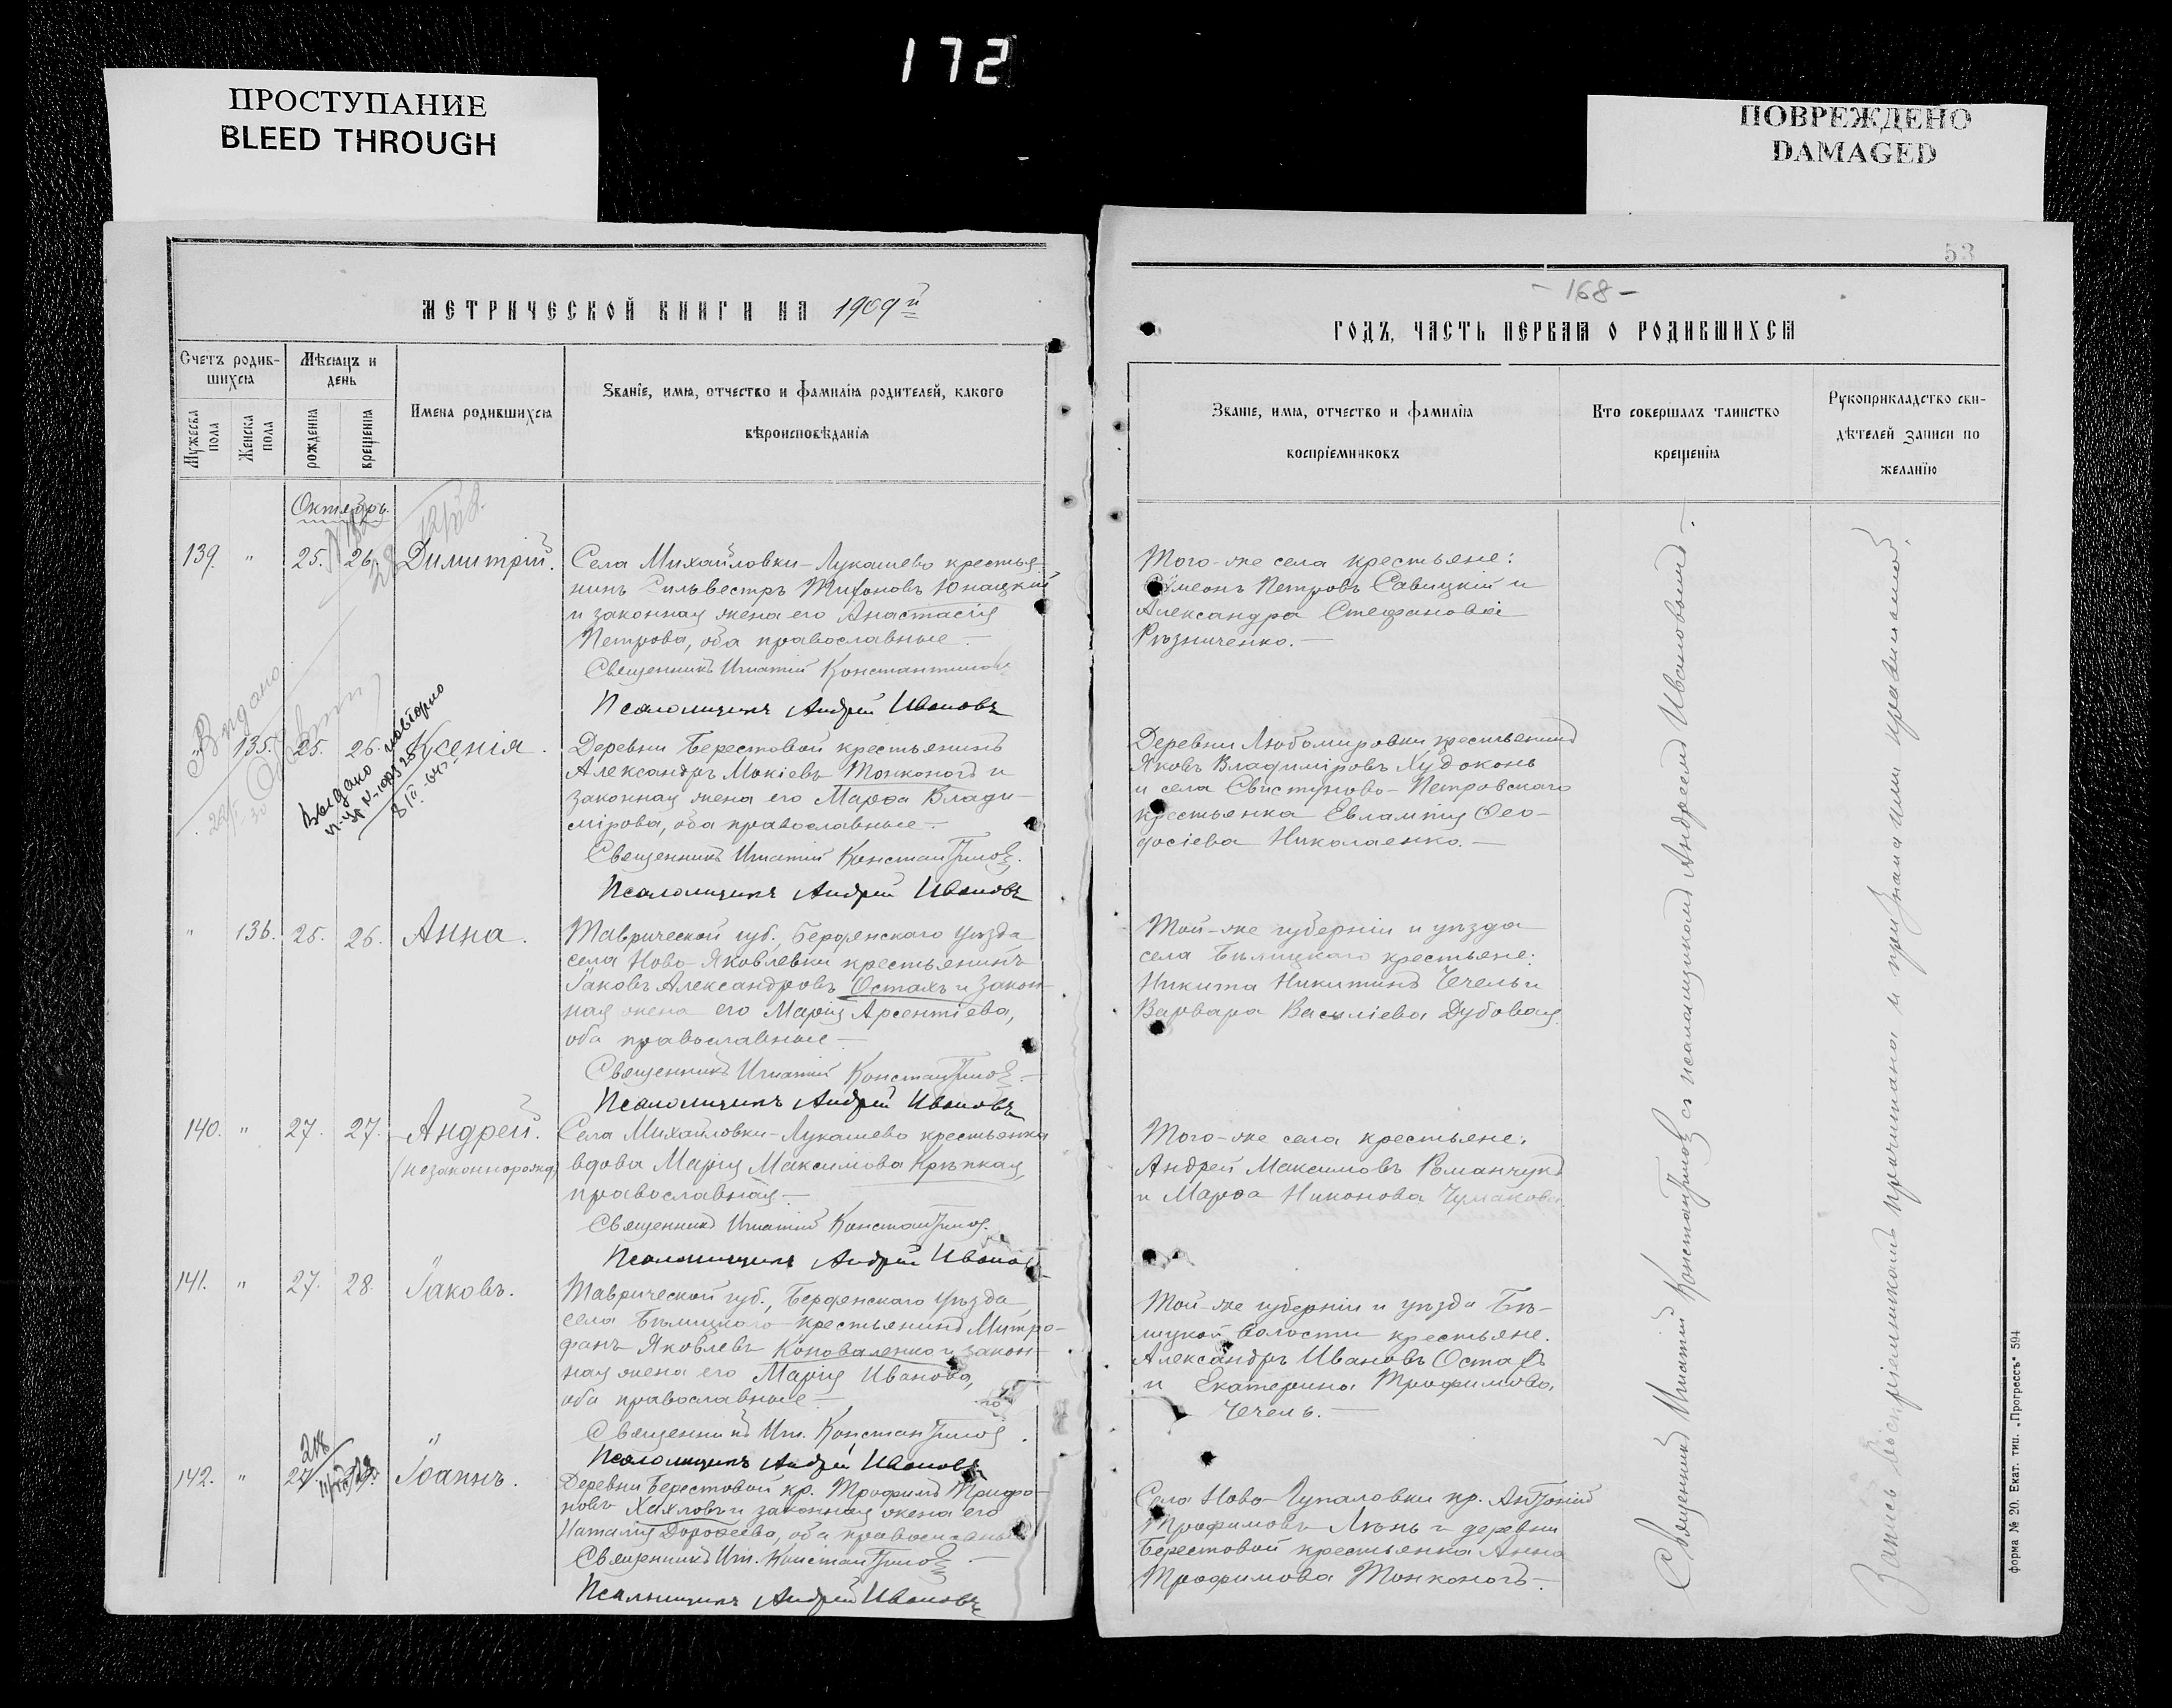 172
ПРОСТУПАНИЕ
BLEED THROUGH
ПОВРЕЖДЕНО
DAMAGED
МЕТРИЧЕСКОЙ КНИГИ НА 1909й
Счетъ родив-
шихся
Мужеска пола
Женска пола
Мѣсяцъ и
день
рожденія
крещенія
Имена родившихся
Званіе, имя, отчество и фамилія родителей, какого
вѣроисповѣданія
Октябрь.
139. " 25. 26. Димитрій.
Села Михайловки-Лукашево крестья-
нинъ Сильвестръ Тихоновъ Юнацкій
и законная жена его Анастасія
Петрова, оба православные.—
Священникъ Игнатій Константинов
Псаломщикъ Андрей Ивановъ
Выдано
Выдано повторно
" 135. 25. 26. Ксенія.
Деревни Берестовой крестьянинъ
Александръ Мокіевъ Тонконогъ и
законная жена его Марѳа Влади-
мірова, оба православные.—
Священникъ Игнатій Константинов.
Псаломщикъ Андрей Ивановъ
" 136. 25. 26. Анна.
Таврической губ., Бердянскаго уѣзда
села Ново-Яковлевки крестьянинъ
Іаковъ Александровъ Остахъ и закон-
ная жена его Марія Арсентіева,
оба православные—
Священникъ Игнатій Константинов.—
Псаломщикъ Андрей Ивановъ
140. " 27. 27. Андрей.
(незаконнорожд)
Села Михайловки-Лукашево крестьянка
вдова Марія Максимова Крѣпкая,
православная.—
Священникъ Игнатій Константинов.
Псаломщикъ Андрей Ивановъ
141. " 27. 28. Іаковъ.
Таврической губ., Бердянскаго уѣзда
села Бѣлицкаго крестьянинъ Митро-
фанъ Яковлевъ Коноваленко и закон-
ная жена его Марія Иванова,
оба православные—
Священникъ Игн. Константинов.
Псаломщикъ Андрей Ивановъ
142. " 27 Іоаннъ.
Деревни Берестовой кр. Трофимъ Трифо-
новъ Хахловъ и законная жена его
Наталія Дороѳеева, оба православные
Священникъ Игн. Константинов—
Псаломщикъ Андрей Ивановъ
53
-168-
ГОДЪ, ЧАСТЬ ПЕРВАЯ О РОДИВШИХСЯ
Званіе, имя, отчество и фамилія
воспріемниковъ
Кто совершалъ таинство
крещенія
Рукоприкладство сви-
дѣтелей записи по
желанію
Того-же села крестьяне:
Симеонъ Петровъ Савицкій и
Александра Стефанова
Рѣзниченко.—
Деревни Любомировки крестьянинъ
Яковъ Владиміровъ Худоконь
и села Свистуново-Петровскаго
крестьянка Евлампія Ѳео-
досіева Николаенко.—
Той-же губерніи и уѣзда
села Бѣлицкаго крестьяне:
Никита Никитинъ Чечель и
Варвара Василіева Дубовая.
Того-же села крестьяне:
Андрей Максимовъ Романчукъ
и Марѳа Никонова Чумакова.
Той-же губерніи и уѣзда Бѣ-
лицкой волости крестьяне.
Александръ Ивановъ Остахъ
и Екатерина Трофимова
Чечель.—
Села Ново-Гупаловки кр. Антоній
Трофимовъ Линь и деревни
Берестовой крестьянка Анна
Трофимова Тонконогъ—.
Священникъ Игнатій Константинов съ псаломщикомъ Андреемъ Ивановымъ.—
Запись воспріемникомъ прочитана и признана ими правильной.
форма № 20. Екат. тип. „Прогрессъ" 594